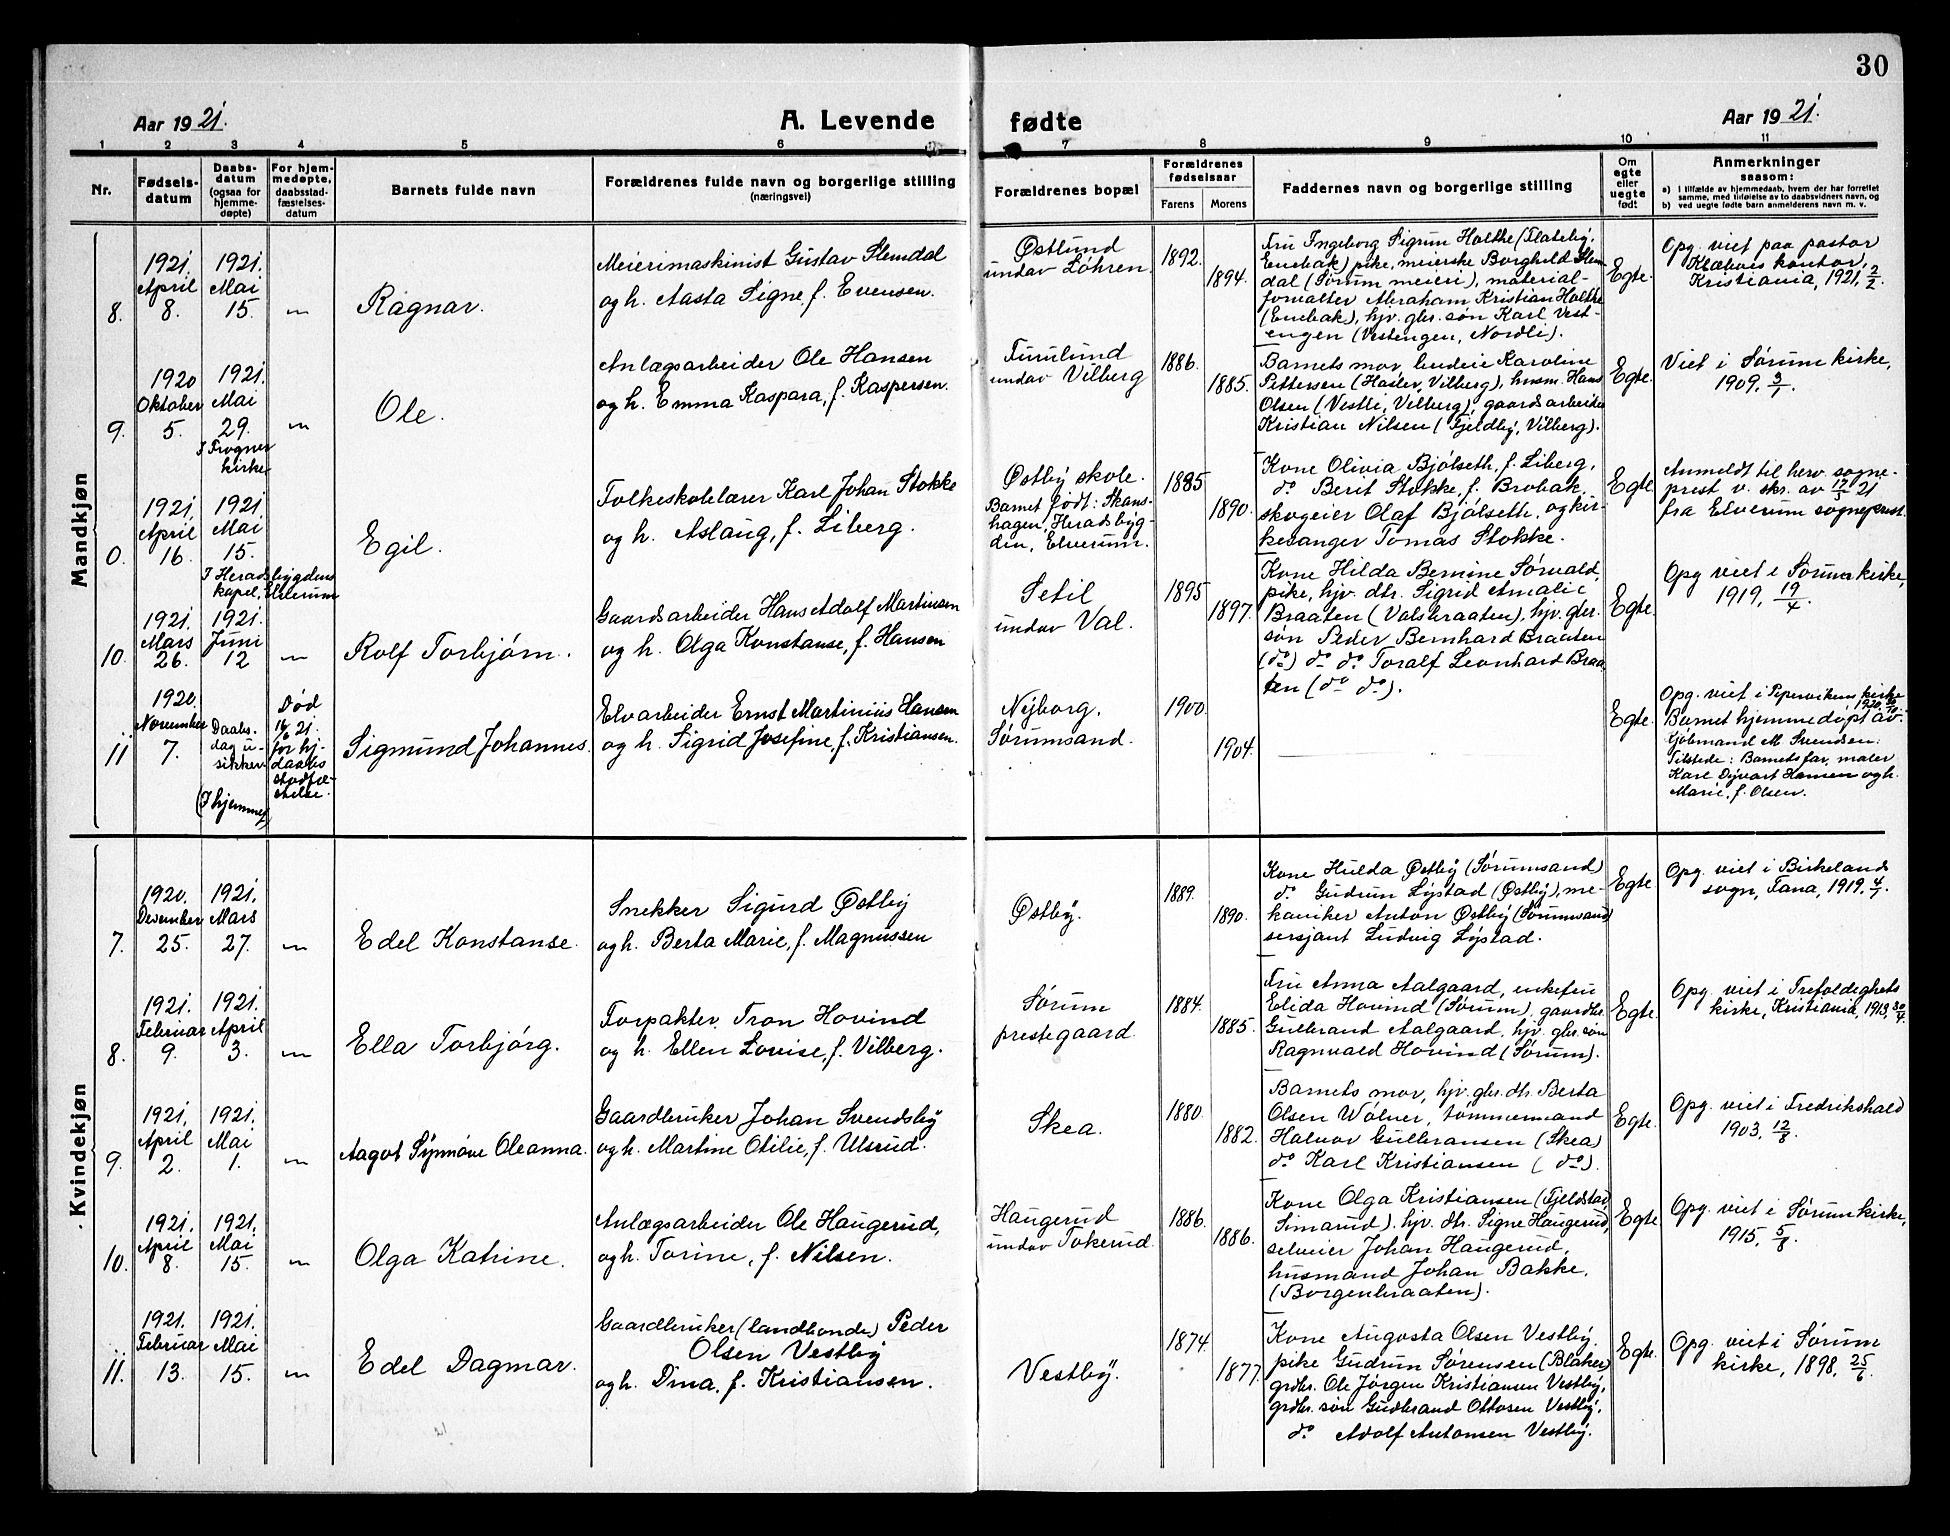 30
Aar 1921.
A. Levende
fødte
Aar 1921.
1 2 3 4 5 6 7 8 9 10 11
Nr.
Fødsels-
datum
Daabs-
datum
(ogsaa for
hjemme-
døpte)
For hjem-
medøpte,
daabsstad-
fæstelses-
datum
Barnets fulde navn
Forældrenes fulde navn og borgerlige stilling
(næringsvei)
Forældrenes bopæl
Forældrenes
fødselsaar
Farens
Morens
Faddernes navn og borgerlige stilling
Om
egte
eller
uegte
født
Anmerkninger
saasom:
a) i tilfælde av hjemmedaab, hvem der har forrettet
samme, med tilføielse av to daabsvidners navn, og
b) ved uegte fødte barn anmelderens navn m. v.
Mandkjøn
8.
1921.
April
8.
1921.
Mai
15.
"
Ragnar.
Meierimaskinist Gustav Slemdal
og h. Aasta Signe, f. Evensen.
Østlund
undav Løhren.
1892.
1894.
Fru Ingeborg Sigrun Holthe (Flateby,
Enebak) pike, meierske Borghild Slem
dal (Sørum meieri), material-
forvalter Abraham Kristian Holthe
(Enebak), hjv. gbr. søn Karl Vest-
engen (Vestengen, Nordli).
Egte.
Opg. viet paa pastor
Klæbois kontor,
Kristiania, 1921, 2/2.
9.
1920
Oktober
5.
1921.
Mai
29.
I Frogner
kirke
"
Ole.
Anlægsarbeider Ole Hansen
og h. Emma Kaspara, f. Kaspersen.
Furulund
undav Vilberg
1886.
1885.
Barnets mor, budeie Karoline
Pettersen (Hasler, Vilberg), hvem. Hans
Olsen (Vestli, Vilberg), gaardsarbeider
Kristian Nilsen (Fjeldby, Vilberg).
Egte.
Viet i Sørum kirke,
1909. 3/1.
0.
1921.
April
16.
1921.
Mai
15.
I Heradsbygdens
kapel, Elverum
Egil.
Folkeskolelærer Karl Johan Stokke
og h. Aslaug, f. Liberg.
Østby skole.
Barnet født: Skans-
hagen, Heradsbyg-
den, Elverum.
1885
1890.
Kone Olivia Bjølseth, f. Liberg,
do Berit Stokke, f. Brobak,
skogeier Olaf Bjølseth, og kir-
kesanger Tomas Stokke.
Egte.
Anmeldt til herv. sogne-
prest v. skr. av 17/5 21
fra Elverum sogneprest.
10.
1921.
Mars
26.
1921.
Juni
12
"
Rolf Torbjørn.
Gaardsarbeider Hans Adolf Martinsen
og h. Olga Konstanse, f. Hansen
Setil
undav Val.
1895
1897.
Kone Hilda Bernine Sørvald,
pike, hjv. dtr. Sigrid Amalie
Braaten (Valsbraaten), hjv. gbr.
søn Peder Bernhard Braaten
(do) do do Toralf Leonhard Braa-
ten (do do).
Egte.
Opg viet i Sørum kirke,
1919, 19/4.
11
1920.
November
7.
Daabs-
dag u-
sikker
(I hjemmet)
Død
16/6 21.
før hj.
daabs
stadfæ-
stelse.
Sigmund Johannes.
Elvarbeider Ernst Martinius Hansen
og h. Sigrid Josefine, f. Kristiansen.
Nyborg.
Sørumsand.
1900.
1904.
Egte.
Opg. viet i Pipervikens kirke
1920,
Barnet hjemmedøpt av:
Kjøbmand M. Svendsen.
Tilstede: Barnets far, maler
Karl Dyvart Hansen og h.
Marie, f. Olsen.
Kvindekjøn
7.
1920.
Desember
25.
1921.
Mars
27.
"
Edel Konstanse.
Snekker Sigurd Østby
og h. Berta Marie, f. Magnussen
Østby.
1889.
1890.
Kone Hulda Østby (Sørumsand)
do Gudrun Lystad (Østby), me-
kaniker Anton Østby (Sørumsand)
sersjant Ludvig Lystad.
Egte.
Opg. viet i Birkelands
sogn, Fana, 1919. 4/7.
8.
1921.
Februar
9.
1921.
April
3.
"
Ella Torbjørg.
Forpakter Tron Hovind
og h. Ellen Lovise, f. Vilberg.
Sørum
prestegaard.
1884.
1885.
Fru Anna Aalgaard, enkefru
Elida Hovind (Sørum), gaardbr.
Gulbrand Aalgaard, hjv. gbr. søn
Ragnvald Hovind (Sørum).
Egte.
Opg. viet i Trefoldigheds
kirke, Kristiania, 1913, 30/4.
9.
1921.
April
2.
1921.
Mai
1.
"
Aagot Synnøve Oleanna.
Gaardbruker Johan Svendsby
og h. Martine Otilie, f. Ulsrud.
Skea.
1880.
1882.
Barnets mor, hjv. gbr. dtr. Berta
Olsen Wølner, tømmermand
Halvor Gulbransen (Skea)
do Karl Kristiansen (do).
Egte.
Opg. viet i Fredrikshald
1903, 12/8.
10.
1921.
April
8.
1921.
Mai
15.
"
Olga Katrine.
Anlægsarbeider Ole Haugerud,
og h. Torine, f. Nilsen.
Haugerud
undav Tokerud.
1886.
1886.
Kone Olga Kristiansen (Fjeldstad,
Simarud). hjv. dtr. Signe Haugerud,
selveier Johan Haugerud,
husmand Johan Bakke,
(Borgenbraaten).
Egte
Opg. viet i Sørum kirke,
1915, 5/8.
11.
1921.
Februar
13.
1921.
Mai
15.
"
Edel Dagmar.
Gaardbruker (landhonde) Peder
Olsen Vestby
og h. Dina, f. Kristiansen.
Vestby.
1874.
1877.
Kone Augosta Olsen Vestby,
pike Gudrun Sørensen (Blaker)
grdbr. Ole Jørgen Kristiansen Vestby,
grdbr. søn Gudbrand Ottosen Vestby,
do Adolf Antonsen Vestby.
Egte.
Opg. viet i Sørum
kirke, 1898, 25/6.